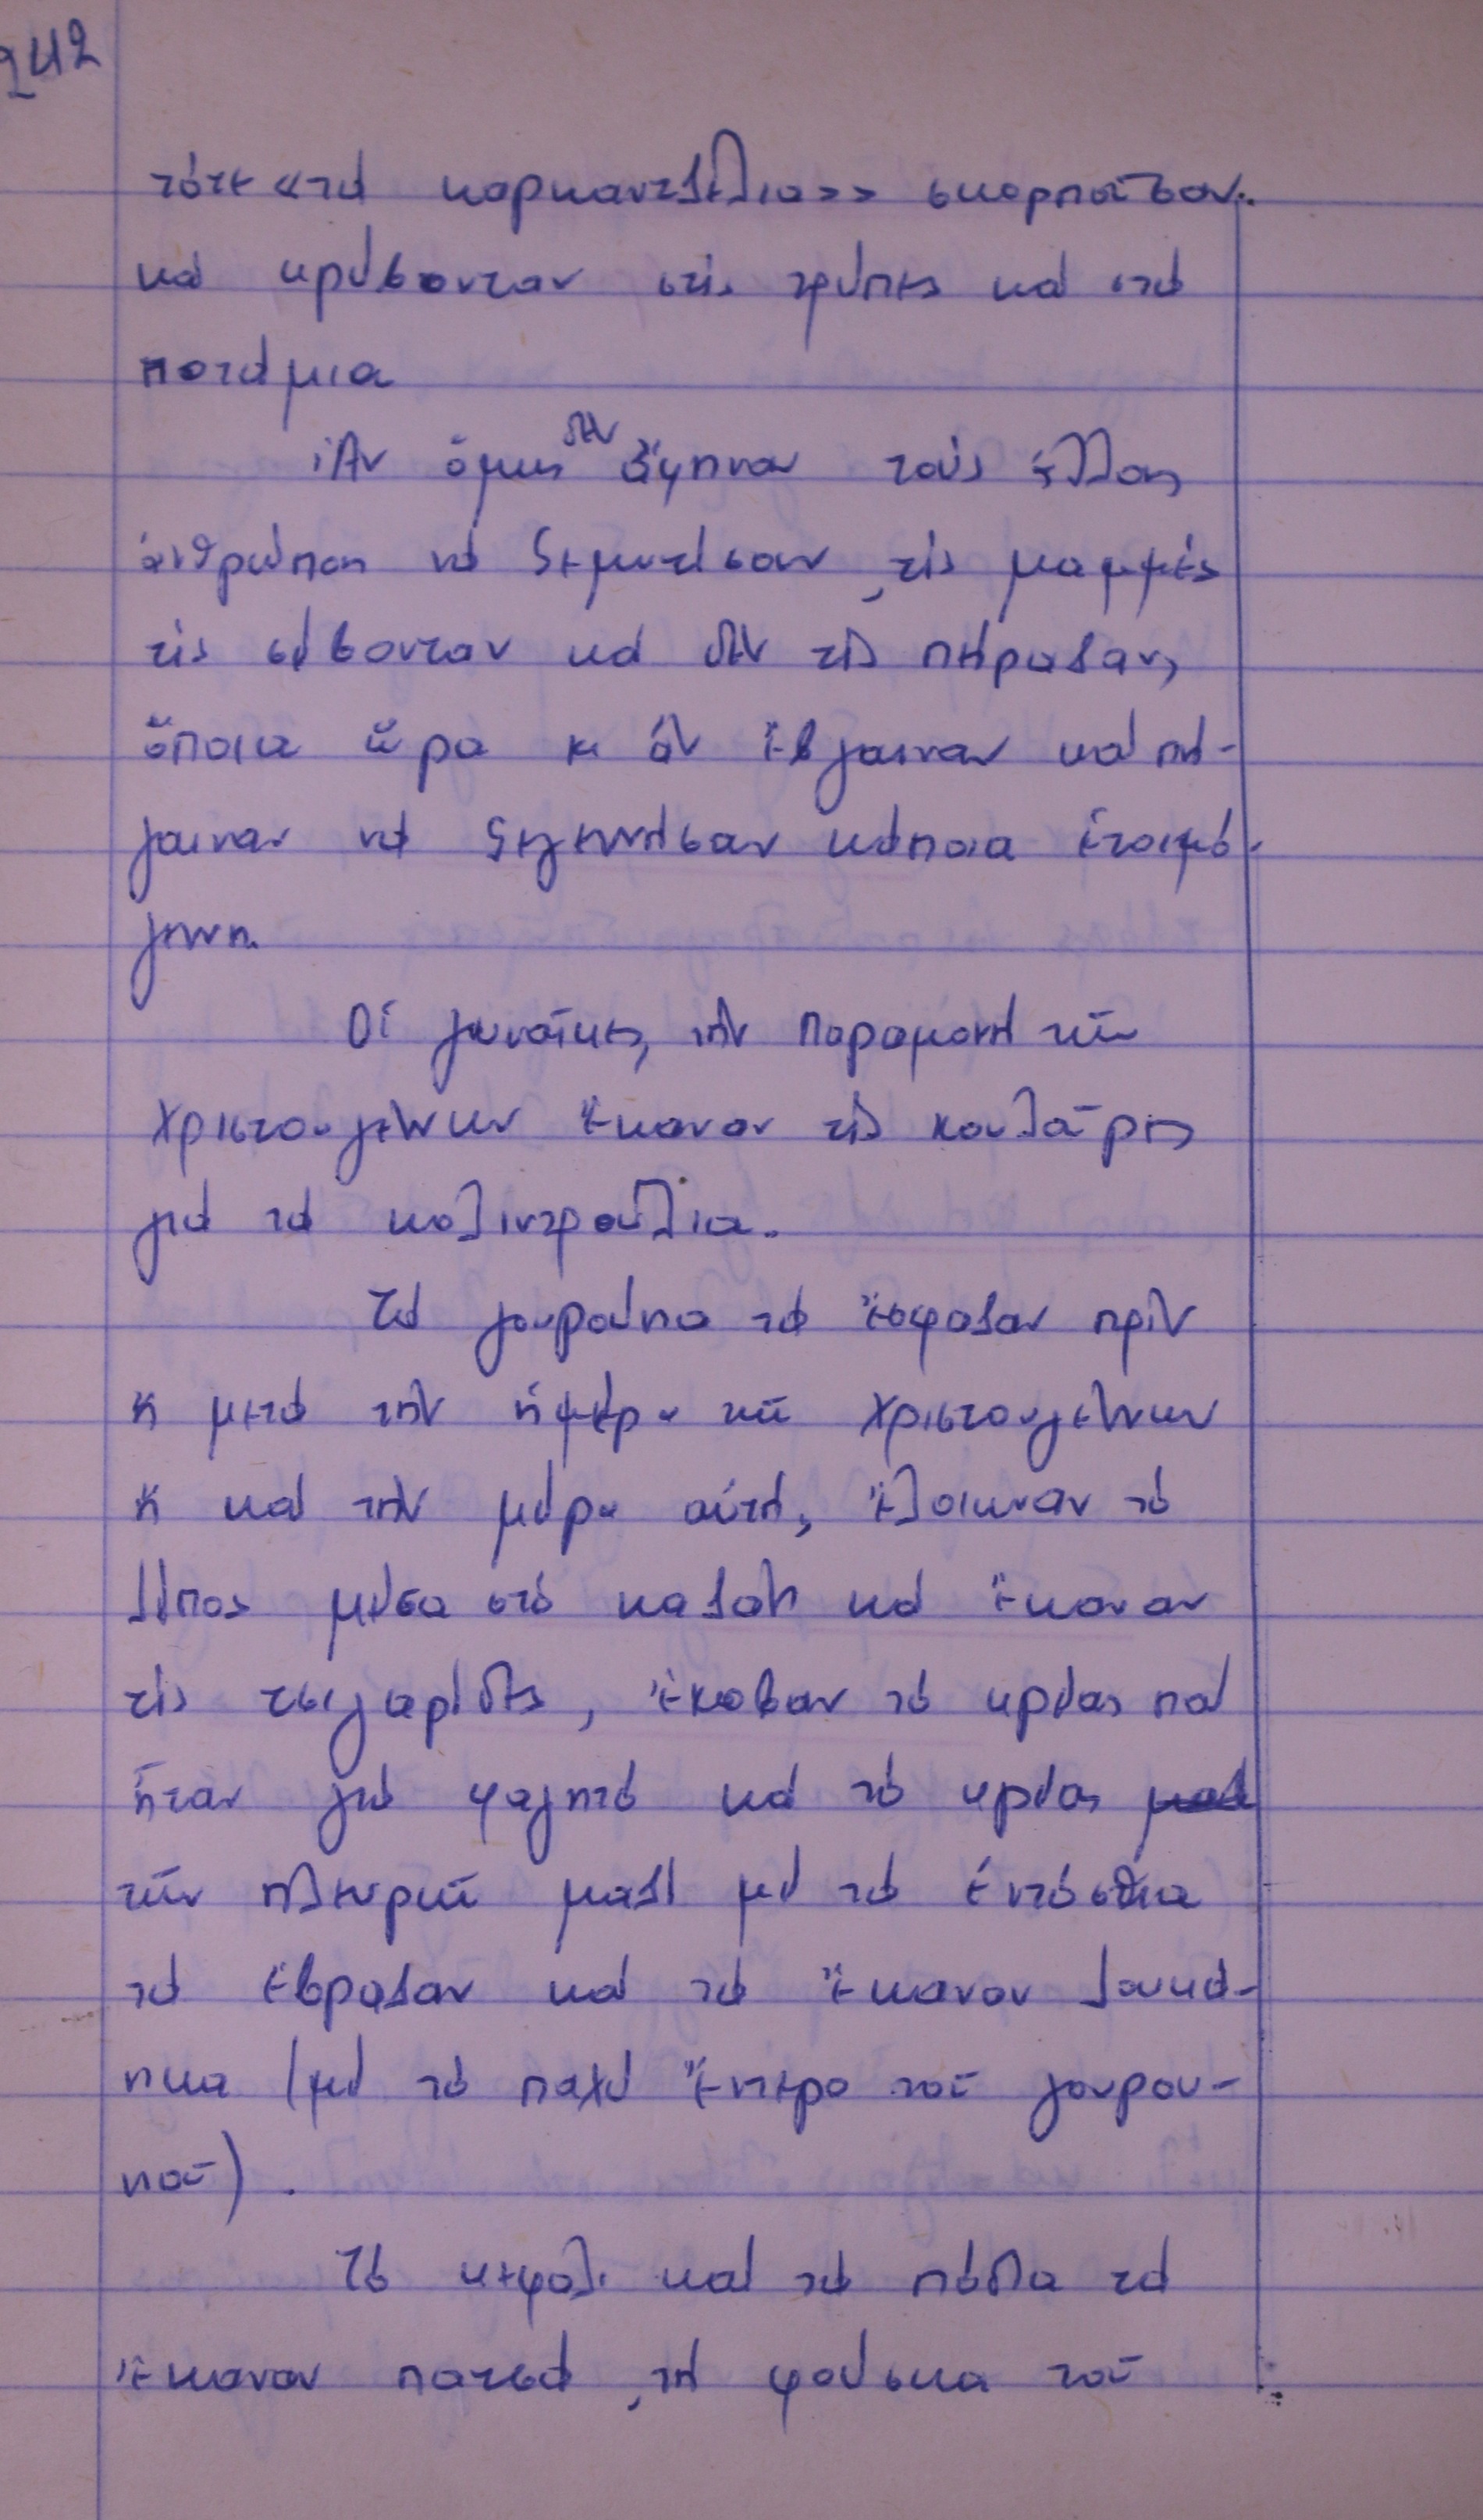 242
τότε «τά καρκαντζέλια» σκορποῦσαν
καί κρύβονταν στίς τρύπες καί στά
ποτάμια
Ἄν ὅμως δέν ἄφηναν τούς ἄλλους
ἀνθρώπους νά ξεμυτίσουν, τίς μαμμές
τίς σέβονταν καί δέν τίς πείραζαν,
ὅποια ὥρα κι ἄν ἔβγαιναν καί πή-
γαιναν νά ξεγεννήσουν κάποια ἑτοιμό-
γεννη.
Οἱ γυναῖκες, τήν παραμονή τῶν
Χριστουγέννων ἔκαναν τίς κουλοῦρες
γιά τά κολιντροῦλια.
Τά γουρούνια τά ἔσφαζαν πρίν
ἤ μετά τήν ἡμέρα τῶν Χριστουγέννων
ἤ καί τήν μέρα αὐτή, ἔλοιωναν τό
λίπος μέσα στό καζάνι καί ἔκαναν
τίς τσιγαρίδες, ἔκοβαν τό κρέας πού
ἦταν γιά φαγητό καί τό κρέας
τῶν πλευρῶν μαζί μέ τά ἐντόσθια
τά ἔβραζαν καί τά ἔκαναν λουκά-
νικα (μέ τό παχύ ἔντερο τοῦ γουρου-
νιοῦ).
Τό κεφάλι καί τά πόδια τά
ἔκαναν πατσά, τή φούσκα τοῦ